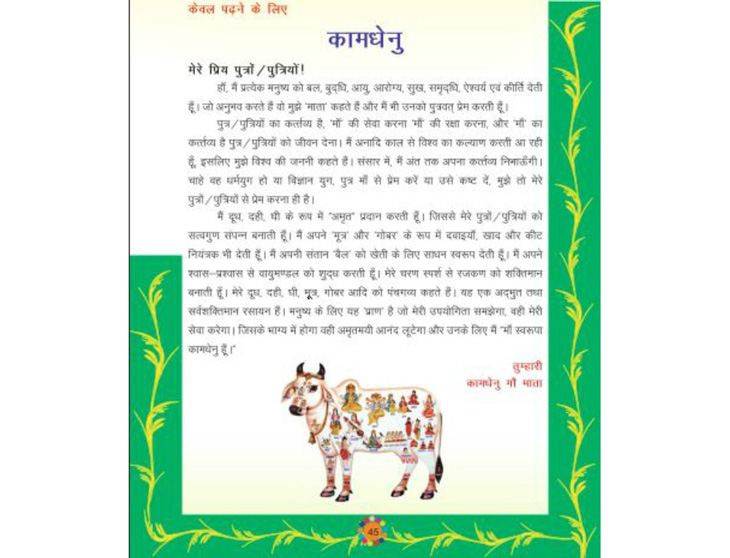 केवल पढ़ने के लिए
कामधेनु
मेरे प्रिय पुत्रों/पुत्रियों!
हाँ, मैं प्रत्येक मनुष्य को बल, बुद्धि, आयु, आरोग्य, सुख, समृद्धि, ऐश्वर्य एवं कीर्ति देती
हूँ। जो अनुभव करते हैं वो मुझे 'माता' कहते हैं और मैं भी उनको पुत्रवत् प्रेम करती हूँ।
पुत्र/पुत्रियों का कर्त्तव्य है, 'माँ' की सेवा करना 'माँ' की रक्षा करना, और 'माँ' का
कर्त्तव्य है पुत्र/पुत्रियों को जीवन देना। मैं अनादि काल से विश्व का कल्याण करती आ रही
हूँ, इसलिए मुझे विश्व की जननी कहते हैं। संसार में, मैं अंत तक अपना कर्त्तव्य निभाऊँगी।
चाहे वह धर्मयुग हो या विज्ञान युग, पुत्र माँ से प्रेम करें या उसे कष्ट दें, मुझे तो मेरे
पुत्रों/पुत्रियों से प्रेम करना ही है।
मैं दूध, दही, घी के रूप में "अमृत" प्रदान करती हूँ। जिससे मेरे पुत्रों/पुत्रियों को
सत्वगुण संपन्न बनाती हूँ। मैं अपने 'मूत्र' और 'गोबर' के रूप में दवाइयाँ, खाद और कीट
नियंत्रक भी देती हूँ। मैं अपनी संतान 'बैल' को खेती के लिए साधन स्वरूप देती हूँ। मैं अपने
श्वास–प्रश्वास से वायुमण्डल को शुद्ध करती हूँ। मेरे चरण स्पर्श से रजकण को शक्तिमान
बनाती हूँ। मेरे दूध, दही, घी, मूत्र, गोबर आदि को पंचगव्य कहते हैं। यह एक अद्भुत तथा
सर्वशक्तिमान रसायन हैं। मनुष्य के लिए यह 'प्राण' है जो मेरी उपयोगिता समझेगा, वही मेरी
सेवा करेगा। जिसके भाग्य में होगा वही अमृतमयी आनंद लूटेगा और उनके लिए मैं "माँ स्वरूपा
कामधेनु हूँ।"
तुम्हारी
कामधेनु गौ माता
45